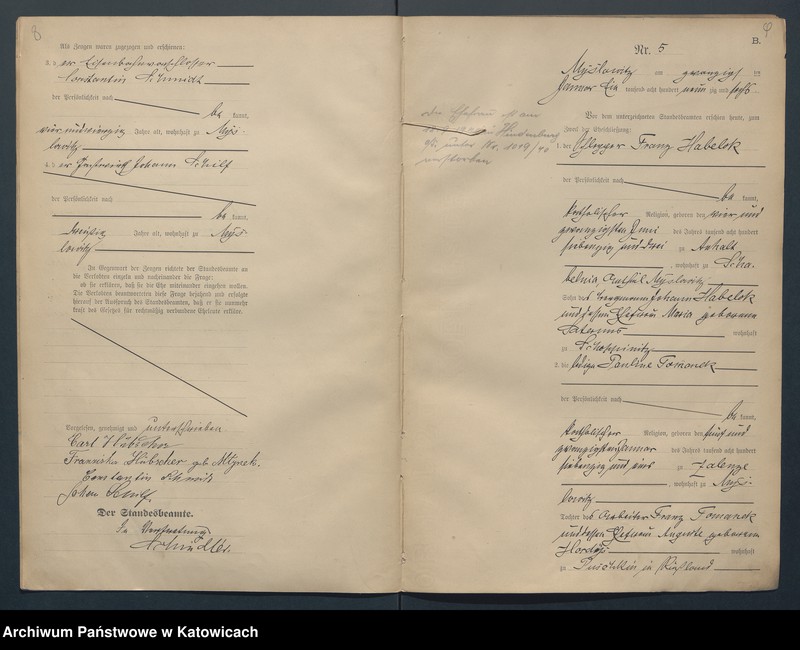 8
Als Zeugen waren zugezogen und erschienen:
3. der Eisenbahnvorschlosser
Constantin Schmidt
der Persönlichkeit nach
be kannt,
vier und vierzig Jahre alt, wohnhaft zu Mys-
lowitz
4. der Johann Schilf
der Persönlichkeit nach
be kannt,
dreißig Jahre alt, wohnhaft zu Mys-
lowitz
In Gegenwart der Zeugen richtete der Standesbeamte an
die Verlobten einzeln und nacheinander die Frage:
ob sie erklären, daß sie die Ehe miteinander eingehen wollen.
Die Verlobten beantworteten diese Frage bejahend und erfolgte
hierauf der Ausspruch des Standesbeamten, daß er sie nunmehr
kraft des Gesetzes für rechtmäßig verbundene Eheleute erkläre.
Vorgelesen, genehmigt und unterschrieben
Carl Hübscher
Franziska Hübscher geb. Mlynek.
Constantin Schmidt
Johann Schilf.
Der Standesbeamte.
In Vertretung
Schindler.
B.
Nr. 5
Myslowitz am zwanzigsten
Januar Ein tausend acht hundert neun zig und sechs
Vor dem unterzeichneten Standesbeamten erschien heute, zum
Zweck der Eheschließung:
1. der Franz Habelok
der Persönlichkeit nach
be kannt,
katholischer Religion, geboren den vier und
zwanzigsten Juni des Jahres tausend acht hundert
siebenzig und drei zu Anhalt
, wohnhaft zu Scha-
belnia, Myslowitz
Sohn des Bergmann Johann Habelok
und dessen Ehefrau Maria geborene
wohnhaft
zu Schoppinitz
2. die ledige Pauline Tomanek
der Persönlichkeit nach
be kannt,
katholischer Religion, geboren den fünf und
zwanzigsten Januar des Jahres tausend acht hundert
siebenzig und eins zu Zalenze
, wohnhaft zu Mys-
lowitz
Tochter des Arbeiter Franz Tomanek
und dessen Ehefrau Auguste geborene
wohnhaft
zu in Rußland
Die Ehefrau ist am
Hindenburg
unter Nr. 1049/40
verstorben
Archiwum Państwowe w Katowicach